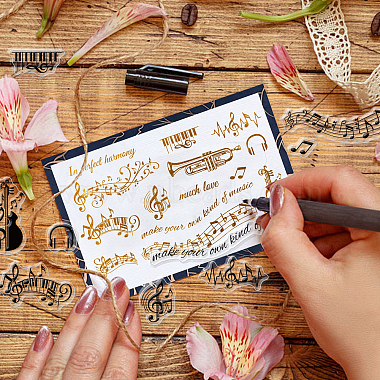 In perfect harmony
much love
make your own kind of music
make your own kind of